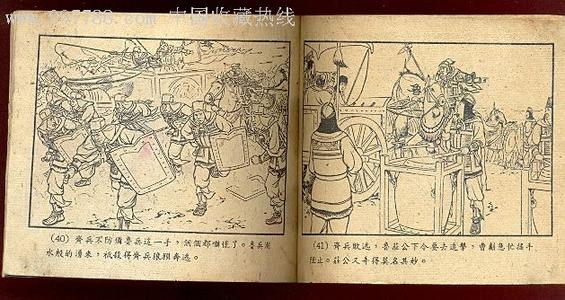 www.997788.com 中国收藏热线
(40) 齊兵不防備魯兵這一手，個個都嚇怔了。魯兵潮
水般的湧來，祇殺得齊兵狼狽奔逃。
(41) 齊兵敗逃，魯莊公下令要去追擊，曹劌急忙搖手
阻止。莊公又弄得莫名其妙。